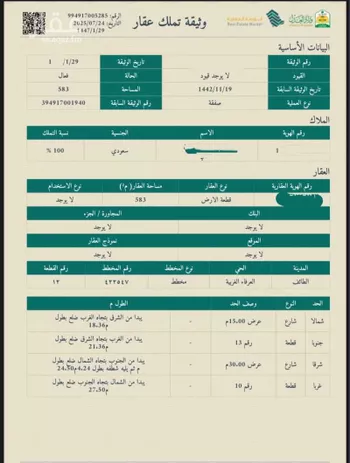 وثيقة تملك عقار
الرقم: 994917005283
التاريخ: 2025/07/24
1447/1/29
وزارة العدل
البورصة العقارية
Real Estate Market
البيانات الأساسية
رقم الوثيقة
تاريخ الوثيقة 1/29/ 1
القيود لا يوجد قيود الحالة فعال
تاريخ الوثيقة السابقة 1442/11/19 المساحة 583
نوع العملية صفقة رقم الوثيقة السابقة 394917001940
الملاك
رقم الهوية الاسم الجنسية نسبة التملك
1 سعودي 100 %
العقار
رقم الهوية العقارية نوع العقار مساحة العقار( م²) نوع الاستخدام
قطعة الارض 583 لا يوجد
البنك المجاورة / الجزء
لا يوجد لا يوجد
الموقع نموذج العقار
لا يوجد لا يوجد
المدينة الحي نوع المخطط رقم المخطط رقم القطعة
الطائف العرفاء الغربية مخطط ٤٣٣٥٤٧ ١٢
الحد النوع وصف الحد الطول م
شمالا شارع عرض 15.00م - يبدا من الشرق بتجاه الغرب ضلع بطول 18.36م
جنوبا قطعة رقم 13 - يبدا من الغرب بتجاه الشرق ضلع بطول 21.36م
شرقا شارع عرض 30.00م - يبدا من الجنوب بتجاه الشمال ضلع بطول 24.50م ثم يليه شطفه بطول 4.24م
غربا قطعة رقم 10 - يبدا من الشمال بتجاه الجنوب ضلع بطول 27.50م